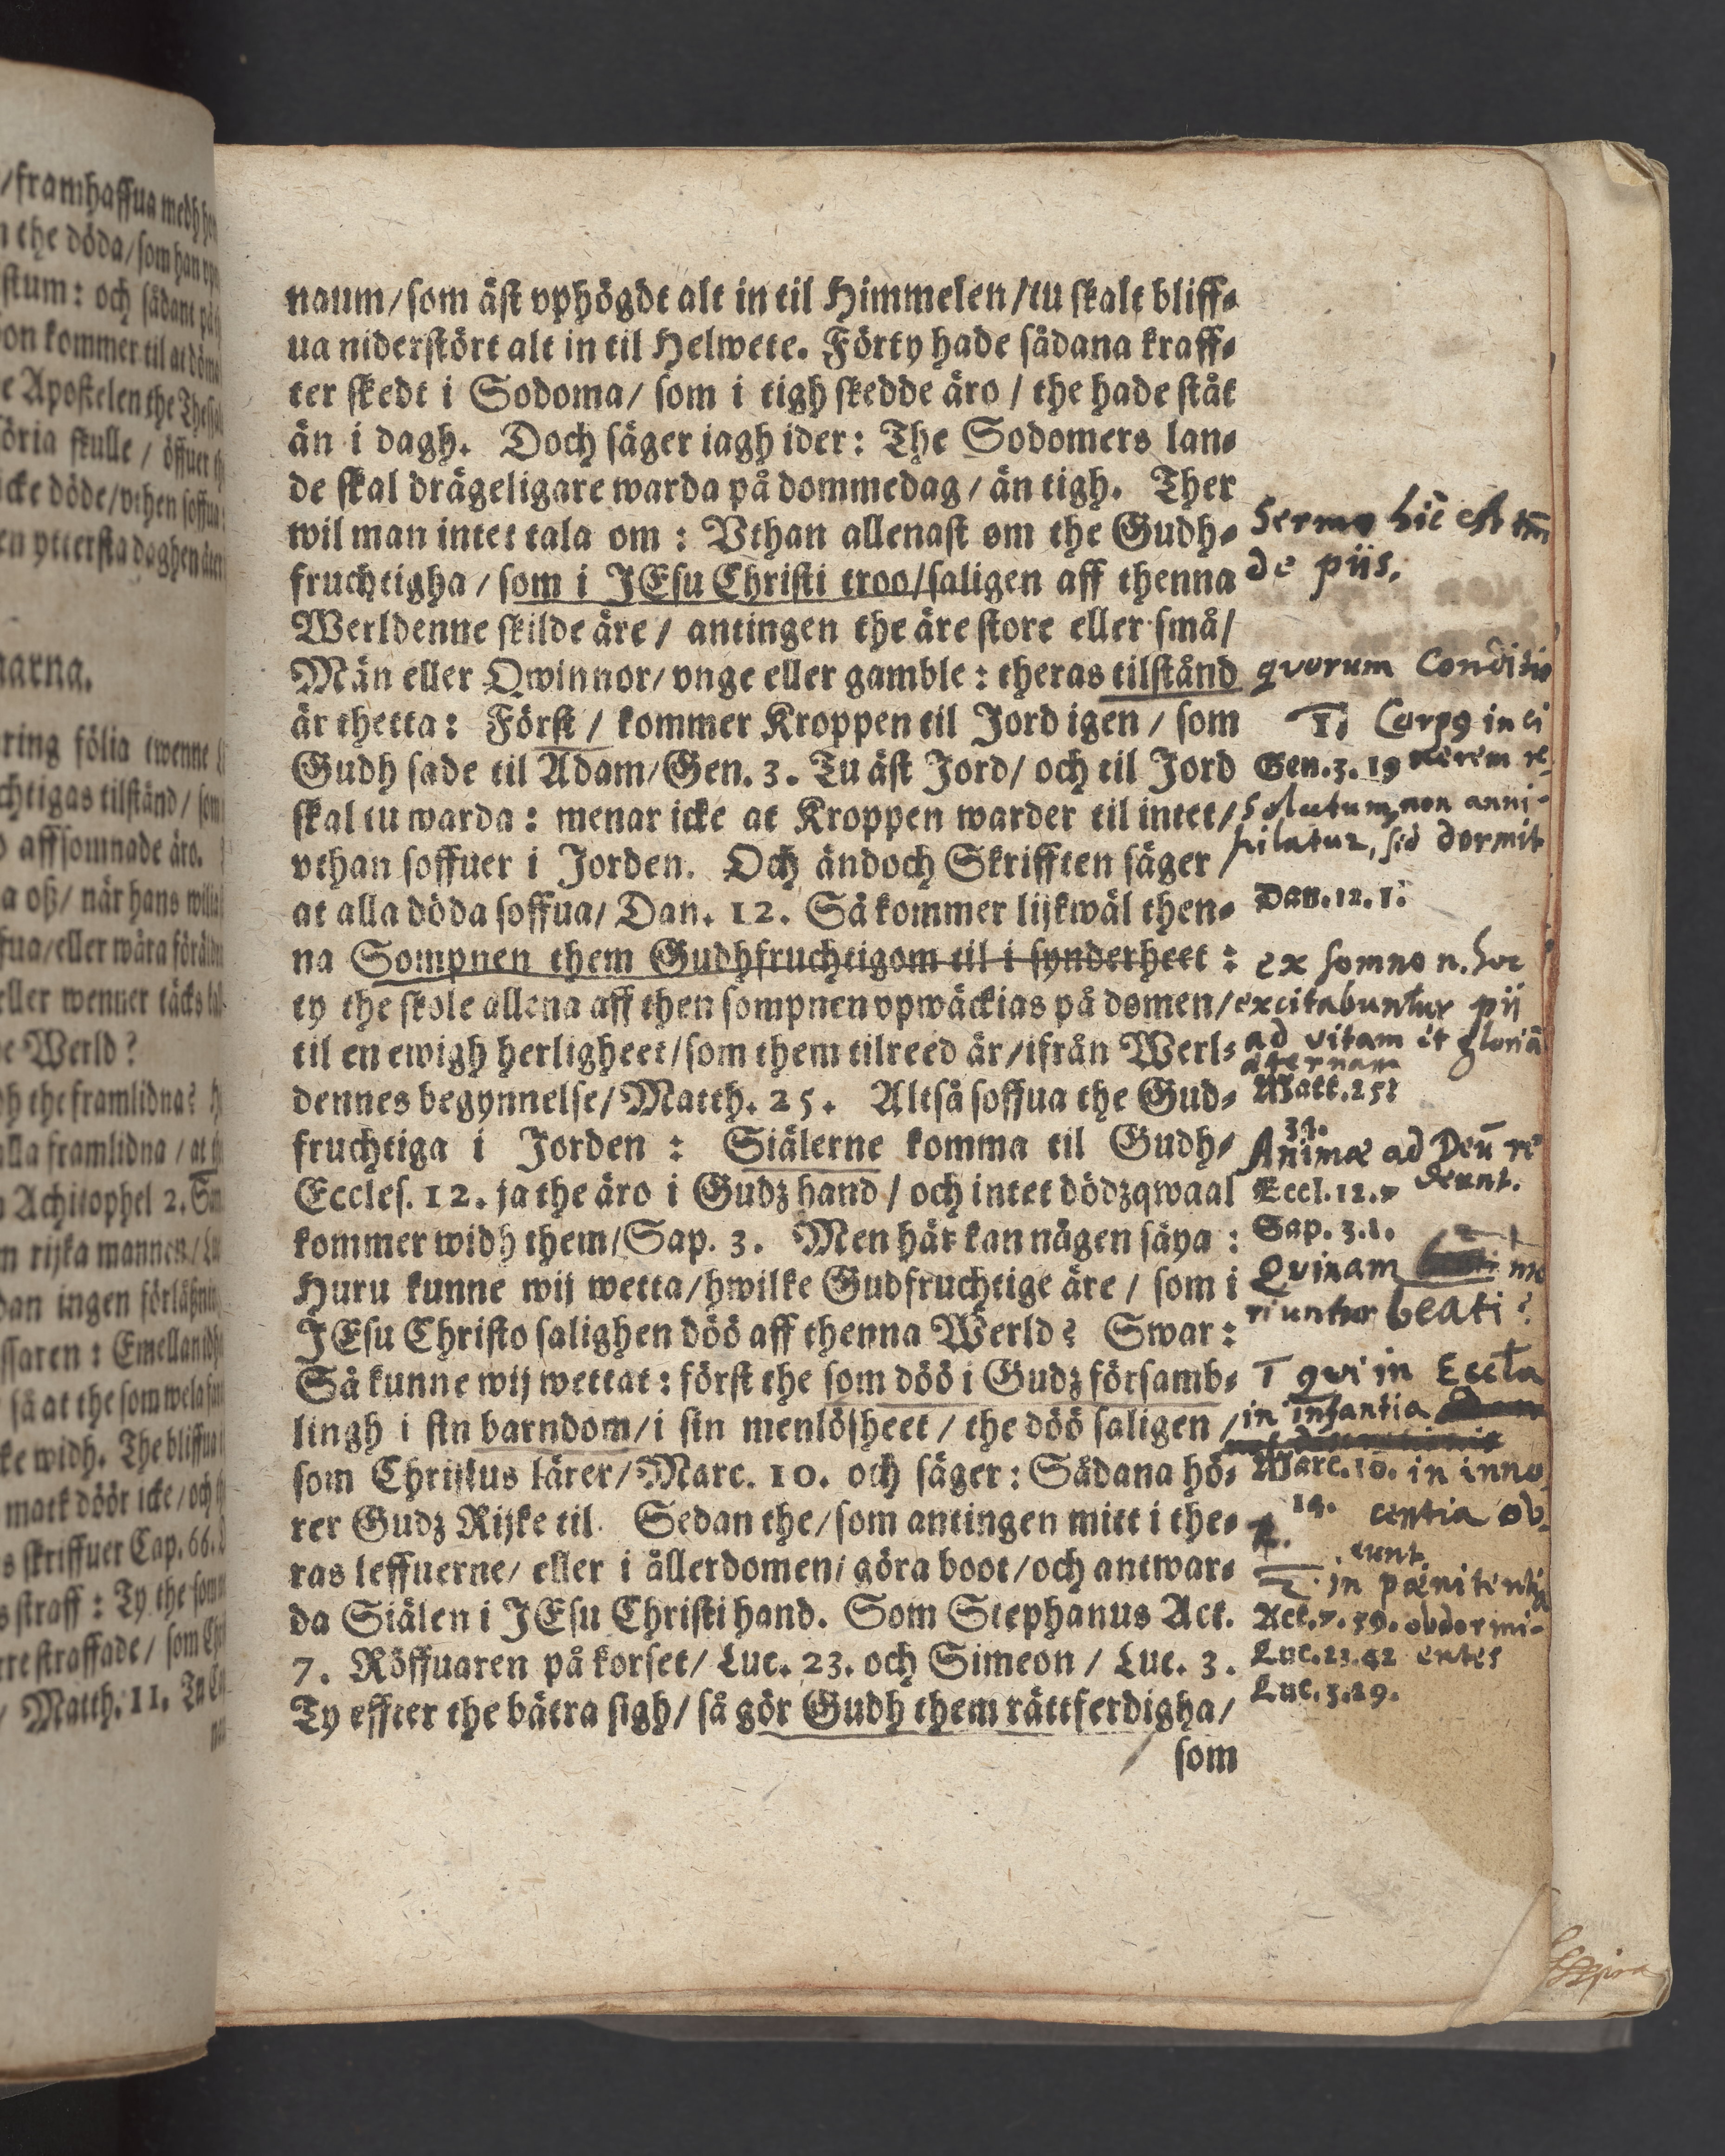 /framhaffua medh
n the döda/som han
stum: och sådant
on kommer til at döma
e Apostelen the
öria skulle / öffuer
icke döde/vthen soffua
en ytterstadaghen
narna.
ring följa twenne
chtigas tilstånd / som
affsomnade äro.
a oß/ når hans
fua/eller wåra
eller wenner täcks
e Werld?
the framlidna?
alla framlidna / at
Achitophel 2. Sam
rijka mannen/
dan ingen
ssaren: Emellan
så at the som wela
ke widh. The bliffua
matk döör icke/och
s skriffuer Cap. 66.
straff: Ty the som
rre straffade/ som
/ Matth. 11. Tu
naum/som äst vphögdt alt in til Himmelen/tu skalt bliff⸗
ua niderstört alt in til Helwete. Förty hade sådana kraff⸗
ter skedt i Sodoma/ som i tigh skedde äro / the hade ståt
än i dagh. Doch säger iagh ider: The Sodomers lan⸗
de skal drägeligare warda på dommedag / än tigh. Ther
wil man intet tala om : Vthan allenast om the Gudh⸗
fruchtigha / som i JEsu Christi troo/saligen aff thenna
Werldenne skilde äre / antingen the äre store eller små/
Män eller Qwinnor/ vnge eller gamble : theras tilstånd
är thetta: Först / kommer Kroppen til Jord igen / som
Gudh sade til Adam/Gen. 3. Tu äst Jord/ och til Jord
skal tu warda : menar icke at Kroppen warder til intet/
vthan soffuer i Jorden. Och ändoch Skrifften säger /
at alla döda soffua/ Dan. 12. Så kommer lijkwäl then⸗
na Sompnen them Gudhfruchtigom til i synderheet :
ty the skole allena aff then sompnen vpwäckias på domen/
til en ewigh herligheet/som them tilreed är/ifrån Werl⸗
dennes begynnelse/Matth. 25. Altså soffua the Gud⸗
fruchtiga i Jorden : Siälerne komma til Gudh/
Eccles. 12. ja the äro i Gudz hand / och intet dödzqwaal
kommer widh them/Sap. 3. Men här kan någen säya :
Huru kunne wij wetta/hwilke Gudfruchtige äre / som i
JEsu Christo salighen döö aff thenna Werld? Swar:
Så kunne wij wettat : först the som döö i Gudz församb⸗
lingh i sin barndom/i sin menlösheet / the döö saligen /
som Christus lärer/Marc. 10. och säger: Sådana hö⸗
rer Gudz Rijke til. Sedan the/som antingen mitt i the⸗
ras leffuerne/ eller i ållerdomen/ göra boot/och antwar⸗
da Siälen i JEsu Christi hand. Som Stephanus Act.
7. Röffuaren på korset/ Luc. 23. och Simeon / Luc. 3.
Ty effter the bätra sigh/ så gör Gudh them rättferdigha/
som
Sermo hic est tm̄
de piis.
qvorum Conditio
1. Corpq in ci
Gen. 3. 19 nerem re⸗
solutum, non anni⸗
hilatur, sed dormit
Dan. 12. 1.
ex somno n. hoc
excitabuntur pij
ad vitam et gloriā
æternam
Matt. 25:
34.
Animæ ad Deū re
Eccl. 12. 7 deunt.
Sap. 3. 1.
Qvinam mo
riuntur beati?
1 qvi in Eccla
in infantia
Marc. 10. in inno
14. centia ob⸗
eunt.
2. in pœnitentia
Act. 7. 59. obdormi⸗
Luc. 23. 42 entes
Luc. 3. 29.